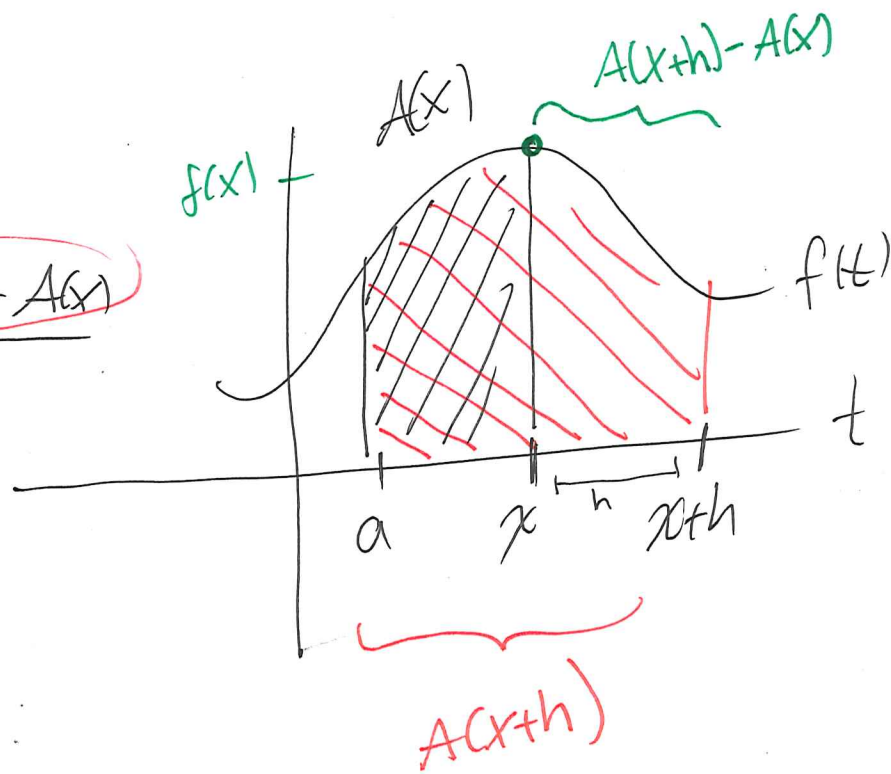 A(x+h)-A(x)
A(x)
f(x)
- A(x)
f(t)
t
h
a
x
x+h
A(x+h)